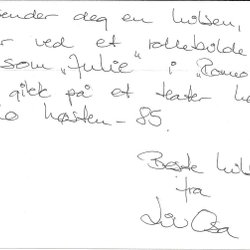 sender deg en hilsen,
r ved et rollebilde
som "Julie" i "Romeo
gikk på et teater he
lo høsten - 85.
Beste hil
fra
Liv Osa